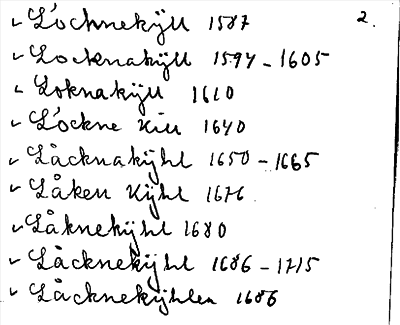 ✓ Löchnekÿll 1587 2.
✓ Locknakÿll 1594 - 1605
✓ Loknakÿll 1610
✓ Löckne Kill 1640
✓ Låcknakÿhl 1650 - 1665
✓ Låken Kÿhl 1676
✓ Låknekÿhl 1680
✓ Låcknekÿhl 1686 - 1715
✓ Låcknekÿhlen 1686